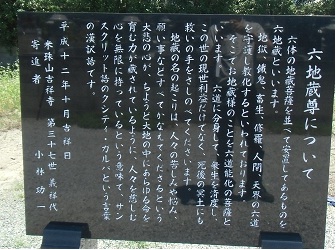 六地蔵尊について
六体の地蔵菩薩を並べて安置してあるものを、
六地蔵といいます。
地獄、餓鬼、畜生、修羅、人間、天界の六道
を守護し教化するといわれております。
そこでお地蔵様のことを六道能化の菩薩と
いいます。六道に分身して、衆生を済度し、
この世の現世利益だけでなく、死後の冥土にも
救いの手をさしのべてくださいます。
地蔵の名の起こりは、人々の苦しみや悩み、
願い事などすべてかなえてくださるという
大悲の心が、ちょうど大地の中にあらゆる命を
育む力が蔵されているように、人を慈しむ
心を無限に持っているという意味で、サン
スクリット語のクシティ・ガルバという言葉
の漢訳語です。
平成十二年十月吉祥日
米珠山吉祥寺 第三十七世 義祥代
寄進者 小林功一